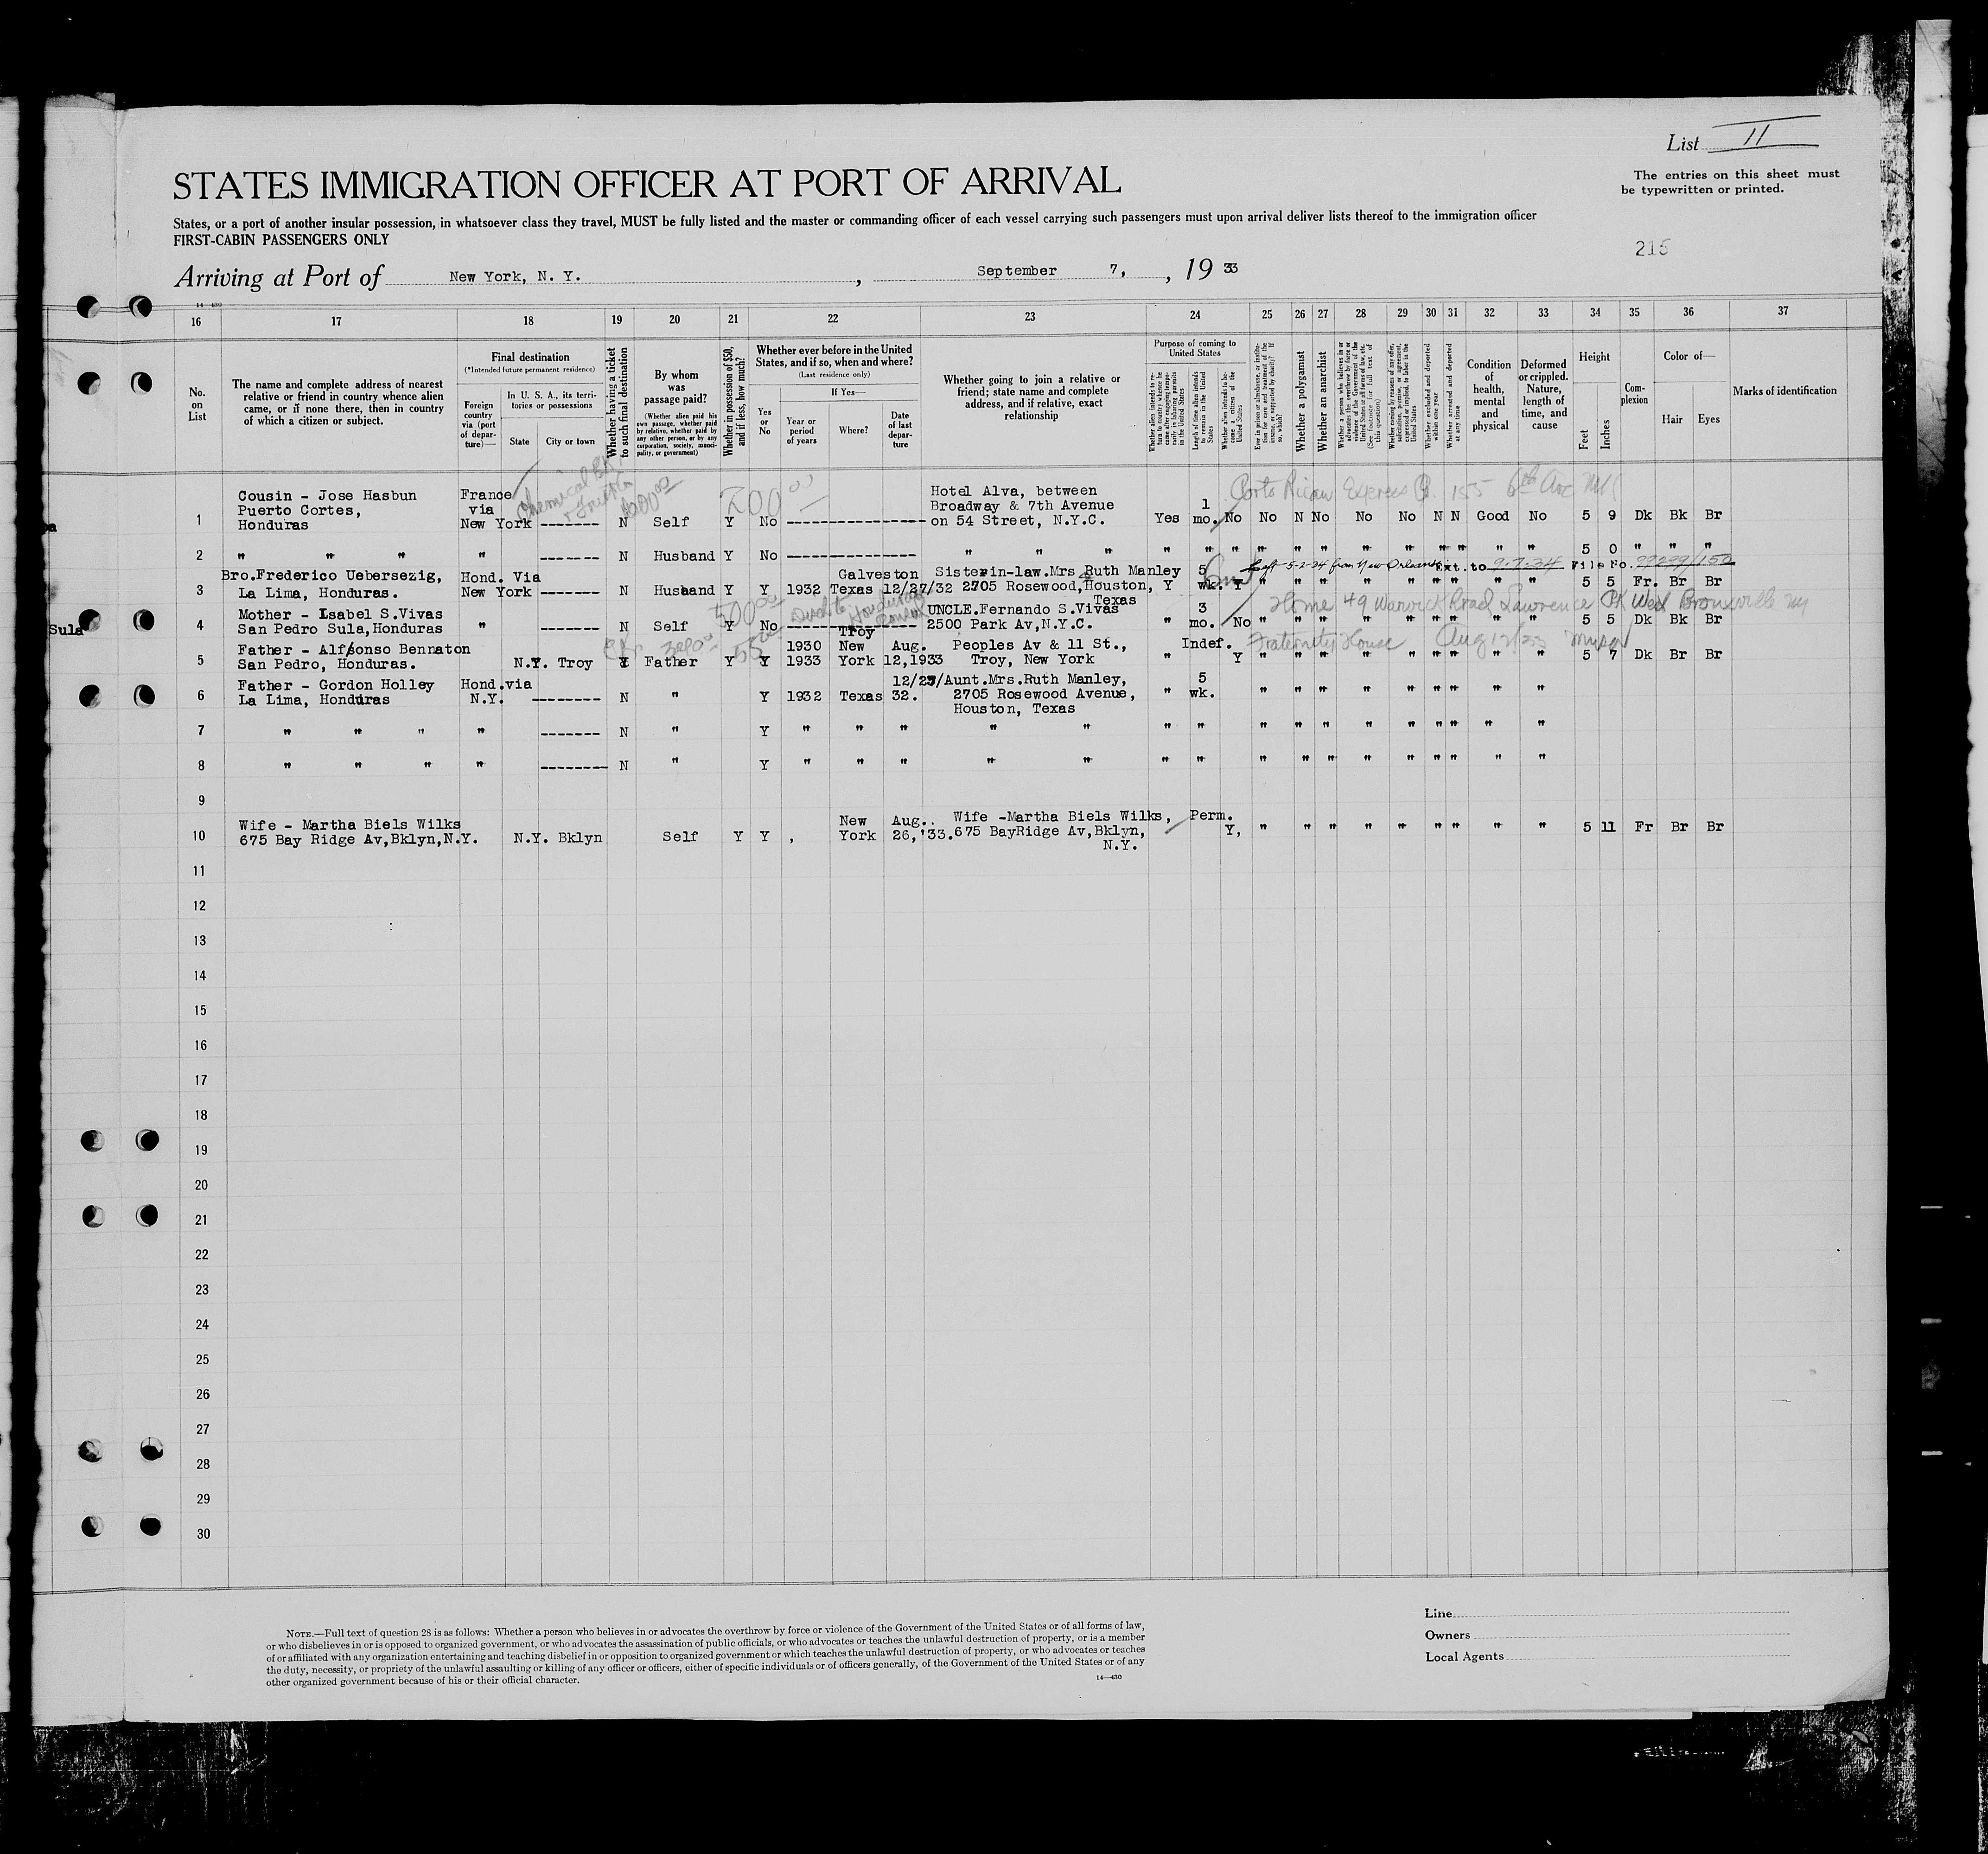 List 11
STATES IMMIGRATION OFFICER AT PORT OF ARRIVAL
The entries on this sheet must
be typewritten or printed.
States, or a port of another insular possession, in whatsoever class they travel, MUST be fully listed and the master or commanding officer of each vessel carrying such passengers must upon arrival deliver lists thereof to the immigration officer
FIRST-CABIN PASSENGERS ONLY
215
Arriving at Port of New York, N. Y. , September 7, , 19 33
16 17 18 19 20 21 22 23 24 25 26 27 28 29 30 31 32 33 34 35 36 37
No. on List
The name and complete address of nearest relative or friend in country whence alien came, or if none there, then in country of which a citizen or subject.
Final destination
(*Intended future permanent residence)
Foreign country via (port of departure)—
In U. S. A., its territories or possessions
State
City or town
Whether having a ticket to such final destination
By whom was passage paid?
(Whether alien paid his own passage, whether paid by relative, whether paid by any other person, or by any corporation, society, municipality, or government)
Whether in possession of $50, and if less, how much?
Whether ever before in the United States, and if so, when and where?
(Last residence only)
If Yes—
Yes or No
Year or period of years
Where?
Date of last departure
Whether going to join a relative or friend; state name and complete address, and if relative, exact relationship
Purpose of coming to United States
Length of time alien intends to remain in the United States
Whether alien intends to become a citizen of the United States
Whether a polygamist
Whether an anarchist
Whether excluded and deported within one year
Whether arrested and deported at any time
Condition of health, mental and physical
Deformed or crippled. Nature, length of time, and cause
Height
Feet
Inches
Complexion
Color of—
Hair
Eyes
Marks of identification
Chemical Bk
200 00
Porto Rican Express Co. 155 6th Ave
1 Cousin - Jose Hasbun Puerto Cortes, Honduras France via New York ------- N Self Y No ---------------- Hotel Alva, between Broadway & 7th Avenue on 54 Street, N.Y.C. Yes 1 mo. No No N No No No N N Good No 5 9 Dk Bk Br
2 " " " " ------- N Husband Y No --------------- " " " " " " " " " " " " " " " 5 0 " " "
Left 5-2-34 from New Orleans Ext. to 9-7-34 File No. 99299/152
3 Bro.Frederico Uebersezig, La Lima, Honduras. Hond. Via New York ------- N Husband Y Y 1932 Galveston Texas 12/27/32 Sister in-law.Mrs Ruth Manley 2705 Rosewood, Houston, Texas Y 5 wk. Y " " " " " " " " " 5 5 Fr. Br Br
Home 49 Warwick Road Lawrence Pk West Bronxville NY
500 00
4 Mother - Isabel S.Vivas San Pedro Sula,Honduras " ------- N Self Y No --------------- UNCLE.Fernando S.Vivas 2500 Park Av,N.Y.C. " 3 mo. No " " " " " " " " " 5 5 Dk Bk Br
Fraternity House Aug 12/33
5 Father - Alfonso Bennaton San Pedro, Honduras. N.Y. Troy Y Father Y Y 1930 1933 Troy New York Aug. 12,1933 Peoples Av & 11 St., Troy, New York " Indef. Y " " " " " " " " " 5 7 Dk Br Br
6 Father - Gordon Holley La Lima, Honduras Hond.via N.Y. -------- N " Y 1932 Texas 12/27/32. Aunt.Mrs.Ruth Manley, 2705 Rosewood Avenue, Houston, Texas " 5 wk. " " " " " " " " "
7 " " " " ------- N " Y " " " " " " " " " " " " " " " "
8 " " " " -------- N " Y " " " " " " " " " " " " " " " "
9
10 Wife - Martha Biels Wilks 675 Bay Ridge Av,Bklyn,N.Y. N.Y. Bklyn Self Y Y , New York Aug.. 26,'33. Wife -Martha Biels Wilks, 675 BayRidge Av,Bklyn, N.Y. Perm. Y, " " " " " " " " " 5 11 Fr Br Br
11
12
13
14
15
16
17
18
19
20
21
22
23
24
25
26
27
28
29
30
Sula
NOTE.—Full text of question 28 is as follows: Whether a person who believes in or advocates the overthrow by force or violence of the Government of the United States or of all forms of law,
or who disbelieves in or is opposed to organized government, or who advocates the assassination of public officials, or who advocates or teaches the unlawful destruction of property, or is a member
of or affiliated with any organization entertaining and teaching disbelief in or opposition to organized government or which teaches the unlawful destruction of property, or who advocates or teaches
the duty, necessity, or propriety of the unlawful assaulting or killing of any officer or officers, either of specific individuals or of officers generally, of the Government of the United States or of any
other organized government because of his or their official character.
14—430
Line
Owners
Local Agents